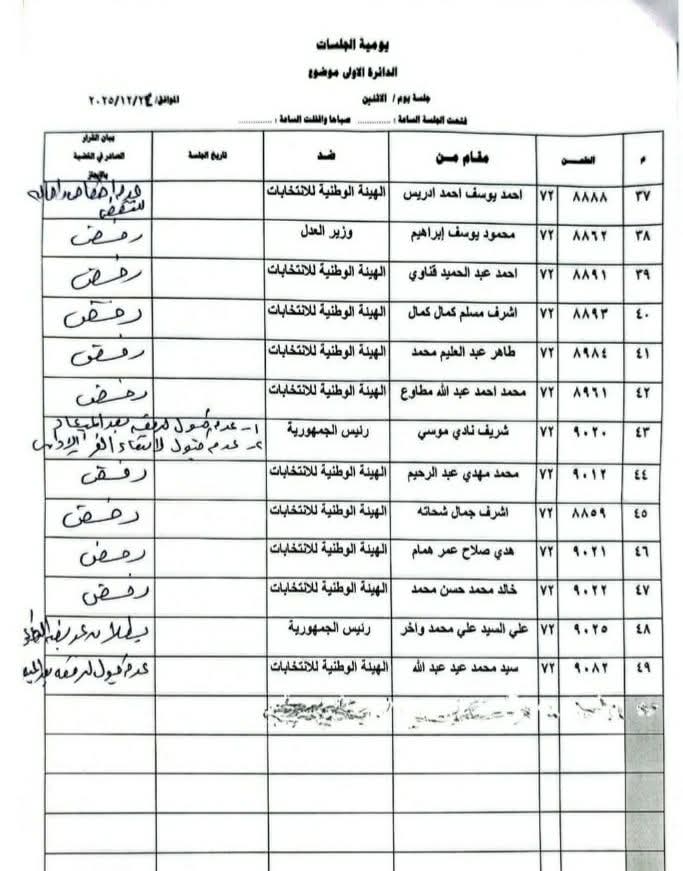 يومية الجلسات
الدائرة الاولى موضوع
جلسة يوم / الاثنين الموافق/ ٢٠٢٥/١٢/٢٢
فتحت الجلسة الساعة : ............ صباحا واقفلت الساعة : ............
م الطعـــن مقام مـن ضد تاريخ الجلسة بيان القرار الصادر في القضية بالإيجاز
٣٧ ٨٨٨٨ ٧٢ احمد يوسف احمد ادريس الهيئة الوطنية للانتخابات عدم اختصاص واحالة للنقض
٣٨ ٨٨٦٢ ٧٢ محمود يوسف إبراهيم وزير العدل رفض
٣٩ ٨٨٩١ ٧٢ احمد عبد الحميد قناوي الهيئة الوطنية للانتخابات رفض
٤٠ ٨٨٩٣ ٧٢ اشرف مسلم كمال كمال الهيئة الوطنية للانتخابات رفض
٤١ ٨٩٨٤ ٧٢ طاهر عبد العليم محمد الهيئة الوطنية للانتخابات رفض
٤٢ ٨٩٦١ ٧٢ محمد احمد عبد الله مطاوع الهيئة الوطنية للانتخابات رفض
٤٣ ٩٠٢٠ ٧٢ شريف نادي موسي رئيس الجمهورية ١- عدم قبول لرفعه بعد الميعاد
٢- عدم قبول لانتفاء القرار الإداري
٤٤ ٩٠١٢ ٧٢ محمد مهدي عبد الرحيم الهيئة الوطنية للانتخابات رفض
٤٥ ٨٨٥٩ ٧٢ اشرف جمال شحاته الهيئة الوطنية للانتخابات رفض
٤٦ ٩٠٢١ ٧٢ هدي صلاح عمر همام الهيئة الوطنية للانتخابات رفض
٤٧ ٩٠٢٢ ٧٢ خالد محمد حسن محمد الهيئة الوطنية للانتخابات رفض
٤٨ ٩٠٢٥ ٧٢ علي السيد علي محمد واخر رئيس الجمهورية بطلان عريضة الطعن
٤٩ ٩٠٨٢ ٧٢ سيد محمد عيد عبد الله الهيئة الوطنية للانتخابات عدم قبول لرفعه بعد